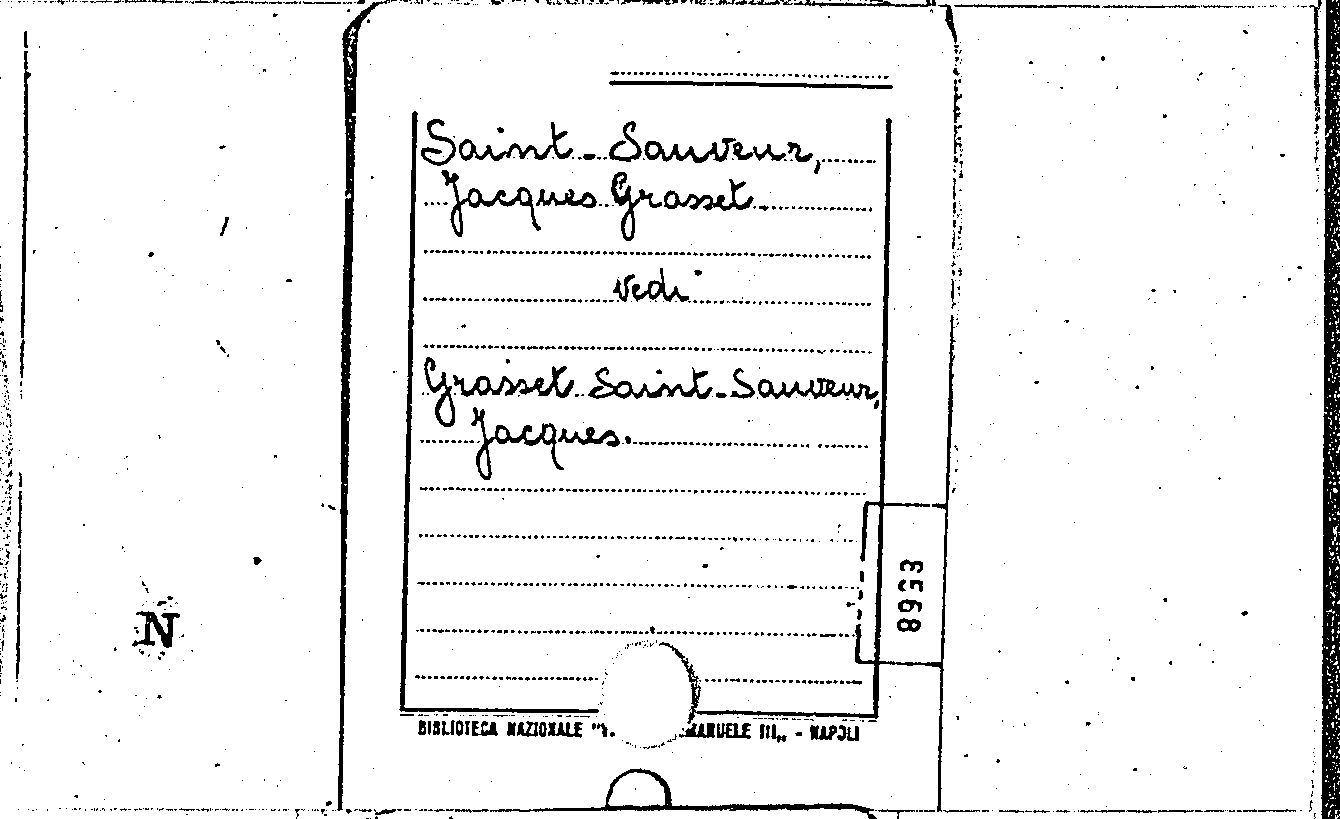 Saint-Sauveur,
Jacques Grasset.
vedi
Grasset Saint-Sauveur,
Jacques.
N
BIBLIOTECA NAZIONALE "V. MANUELE III„ - NAPOLI